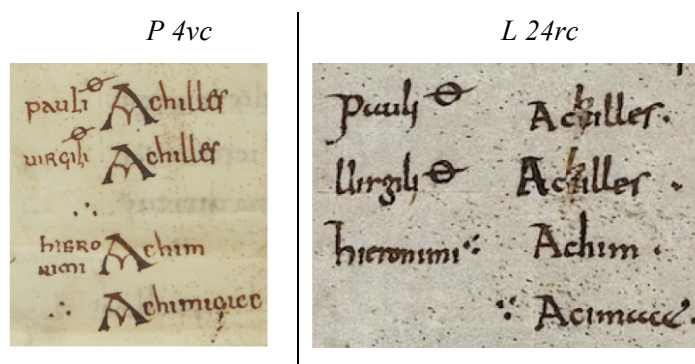 P 4vc
pauli Achilles
uirgili Achilles
hiero
nimi Achim
L 24rc
Pauli Achilles.
Uirgili Achilles .
hieronimi Achim .